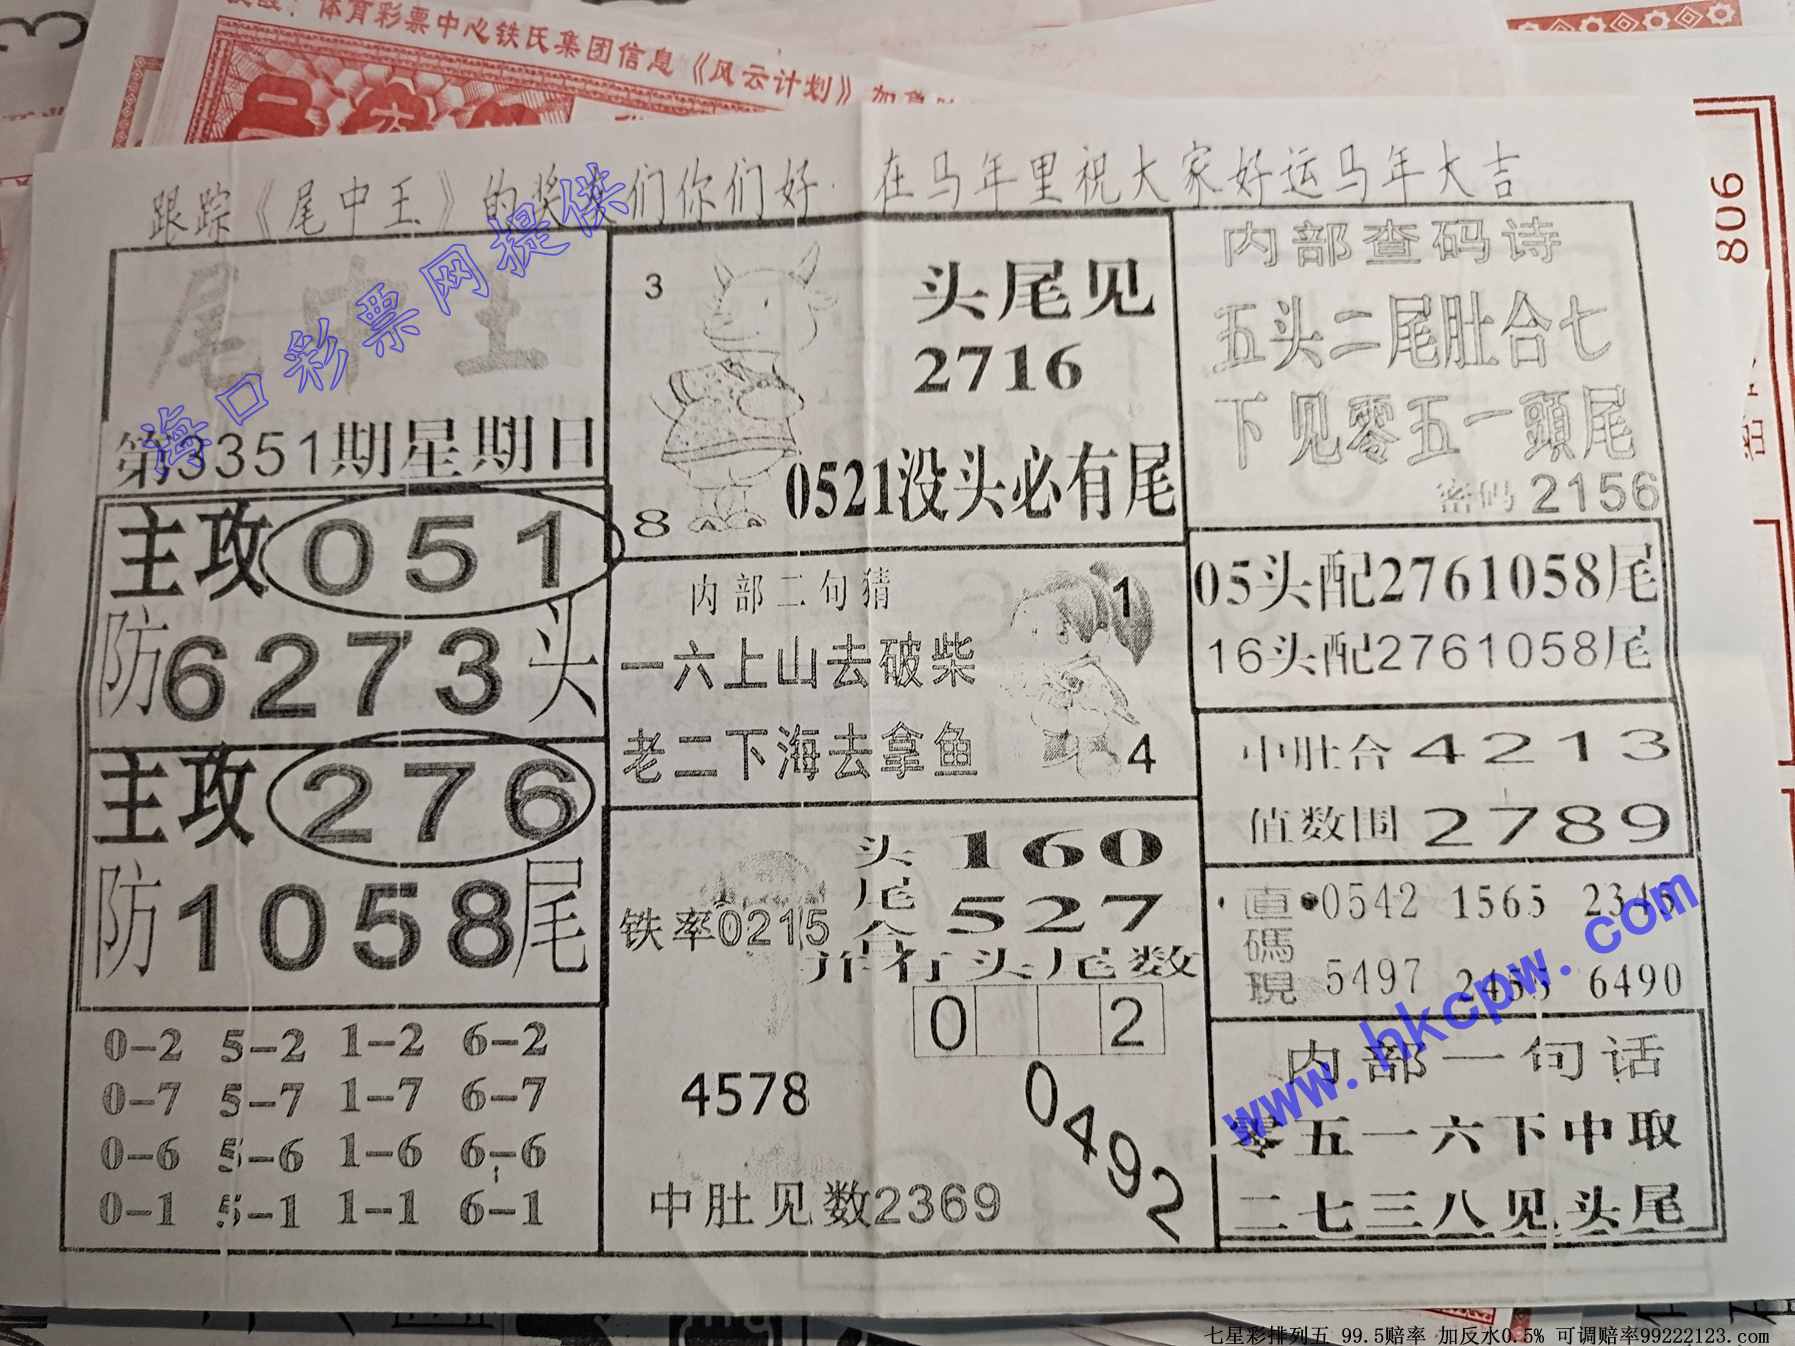 体育彩票中心铁氏集团信息《风云计划》
806
跟踪《尾中王》的奖友们你们好.在马年里祝大家好运马年大吉
海口彩票网提供
尾中王
第3351期星期日
主攻051
防6273头
主攻276
防1058尾
0-2 5-2 1-2 6-2
0-7 5-7 1-7 6-7
0-6 5-6 1-6 6-6
0-1 5-1 1-1 6-1
3
头尾见
2716
0521没头必有尾
8
内部二句猜
1
一六上山去破柴
老二下海去拿鱼
4
头160
尾527
合
铁率0215
并行头尾数
0 2
4578
0492
中肚见数2369
内部查码诗
五头二尾肚合七
下见零五一頭尾
密码2156
05头配2761058尾
16头配2761058尾
中肚合4213
值数围2789
直碼現
0542 1565 2345
5497 2455 6490
www.hkcpw.com
内部一句话
零五一六下中取
二七三八见头尾
七星彩排列五 99.5赔率 加反水0.5% 可调赔率99222123.com